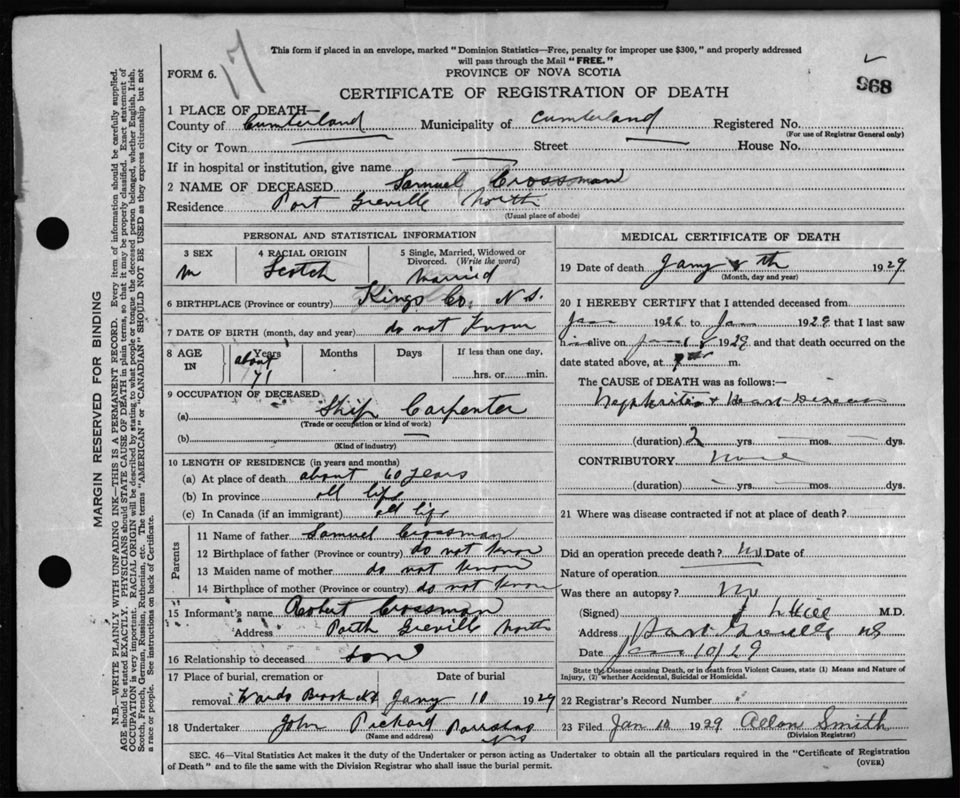 This form if placed in an envelope, marked "Dominion Statistics—Free, penalty for improper use $300," and properly addressed
will pass through the Mail "FREE."
17
FORM 6.
PROVINCE OF NOVA SCOTIA
968
CERTIFICATE OF REGISTRATION OF DEATH
1 PLACE OF DEATH—
County of Cumberland Municipality of Cumberland Registered No.
(For use of Registrar General only)
City or Town Street House No.
If in hospital or institution, give name
2 NAME OF DECEASED Samuel Crossman
Residence Port Greville North
(Usual place of abode)
PERSONAL AND STATISTICAL INFORMATION
3 SEX 4 RACIAL ORIGIN 5 Single, Married, Widowed or
Divorced. (Write the word)
M Scotch Married
6 BIRTHPLACE (Province or country) Kings Co. N.S.
7 DATE OF BIRTH (month, day and year) do not Know
8 AGE IN Years Months Days If less than one day,
about 71 hrs. or min.
9 OCCUPATION OF DECEASED
(a) Ship Carpenter
(Trade or occupation or kind of work)
(b)
(Kind of industry)
10 LENGTH OF RESIDENCE (in years and months)
(a) At place of death about 60 years
(b) In province all life
(c) In Canada (if an immigrant) all life
Parents
11 Name of father Samuel Crossman
12 Birthplace of father (Province or country) do not know
13 Maiden name of mother do not know
14 Birthplace of mother (Province or country) do not know
15 Informant's name Robert Crossman
Address Porth Greville North
16 Relationship to deceased Son
17 Place of burial, cremation or Date of burial
removal Wards Brook Jany 10 1929
18 Undertaker John Pickard Parrsboro
(Name and address) NS
MEDICAL CERTIFICATE OF DEATH
19 Date of death Jany 8 th 1929
(Month, day and year)
20 I HEREBY CERTIFY that I attended deceased from
Jan 1926 to Jan 1929 that I last saw
him alive on Jan 8 1929 and that death occurred on the
date stated above, at m.
The CAUSE OF DEATH was as follows:—
Nephritis + Heart Disease
(duration) 2 yrs. — mos. — dys.
CONTRIBUTORY None
(duration) — yrs. — mos. — dys.
21 Where was disease contracted if not at place of death?
Did an operation precede death? No Date of
Nature of operation
Was there an autopsy? No
(Signed) Hill M.D.
Address Port Greville NS
Date Jan 10/29
State the Disease causing Death, or in death from Violent Causes, state (1) Means and Nature of
Injury, (2) whether Accidental, Suicidal or Homicidal.
22 Registrar's Record Number
23 Filed Jan 10 1929 Allon Smith
(Division Registrar)
SEC. 46—Vital Statistics Act makes it the duty of the Undertaker or person acting as Undertaker to obtain all the particulars required in the "Certificate of Registration
of Death" and to file the same with the Division Registrar who shall issue the burial permit.
(OVER)
MARGIN RESERVED FOR BINDING
N.B.—WRITE PLAINLY WITH UNFADING INK—THIS IS A PERMANENT RECORD. Every item of information should be carefully supplied.
AGE should be stated EXACTLY. PHYSICIANS should STATE CAUSE OF DEATH in plain terms, so that it may be properly classified. Exact statement of
OCCUPATION is very important. RACIAL ORIGIN will be described by stating to what people or tongue the deceased person belonged, whether English, Irish,
Scotch, French, German, Russian, Ruthenian, etc. The terms "AMERICAN" or "CANADIAN" SHOULD NOT BE USED as they express citizenship but not
a race or people. See instructions on back of Certificate.